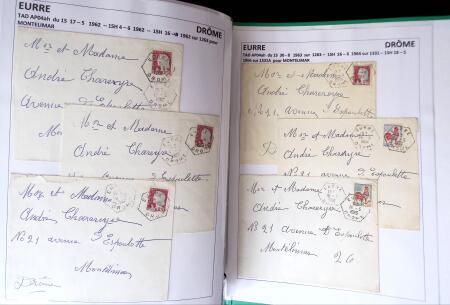 EURRE
DRÔME
TAD AP04ah du 15 17-5 1962 - 15H 4-6 1962 - 15H 16
1962 sur 1263 pour
MONTELIMAR
Mr et Madame
André
Avenue d'Espoulette
Mr et Madame
André
Avenue d'Espoulette
Mr et Madame
André
N° 21 avenue d'Espoulette
Montélimar
Drôme
EURRE
DRÔME
TAD AP04ah du 15 30-8 1963 sur 1263 - 15H 16-6 1964 sur 1331 - 15H 18-5
1966 sur 1331A pour MONTELIMAR
Mr et Madame
André
N° 21, avenue d'Espoulette
Mr et Madame
André
N° 21 avenue d'Espoulette
Mr et Madame
André
N° 21 avenue D'Espoulette
Montélimar
26